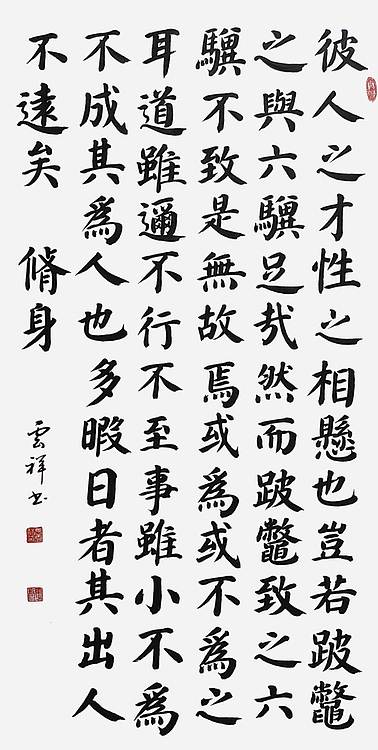 彼人之才性之相懸也豈若跛鼈
之與六驥足哉然而跛鼈致之六
驥不致是無故焉或爲或不爲之
耳道雖邇不行不至事雖小不爲
不成其爲人也多暇日者其出人
不遠矣 脩身
雲祥书